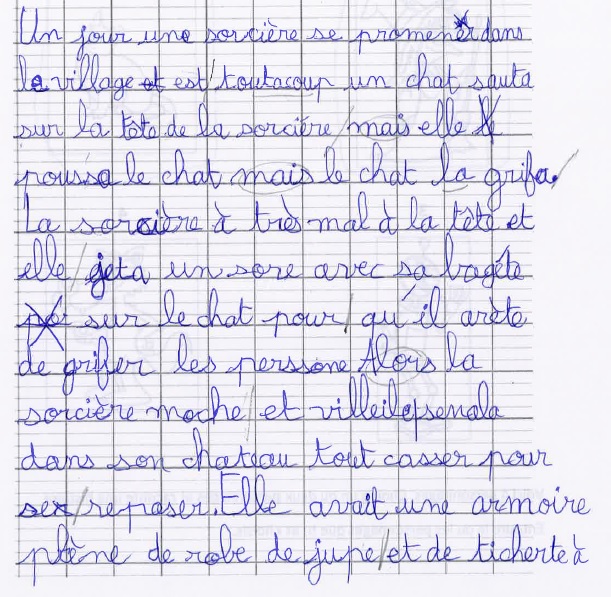 Un jour une sorcière se promener dans
le village et est toutacoup un chat sauta
sur la tête de la sorcière mais elle
poussa le chat mais le chat la grifa.
La sorcière à très mal à la tête et
elle jeta un sore avec sa bagéte
sur le chat pour qu'il arète
de grifer les perssone Alors la
sorcière moche et villeile
dans son chateau tout casser pour
se reposer. Elle avait une armoire
plène de robe de jupe et de ticherte à